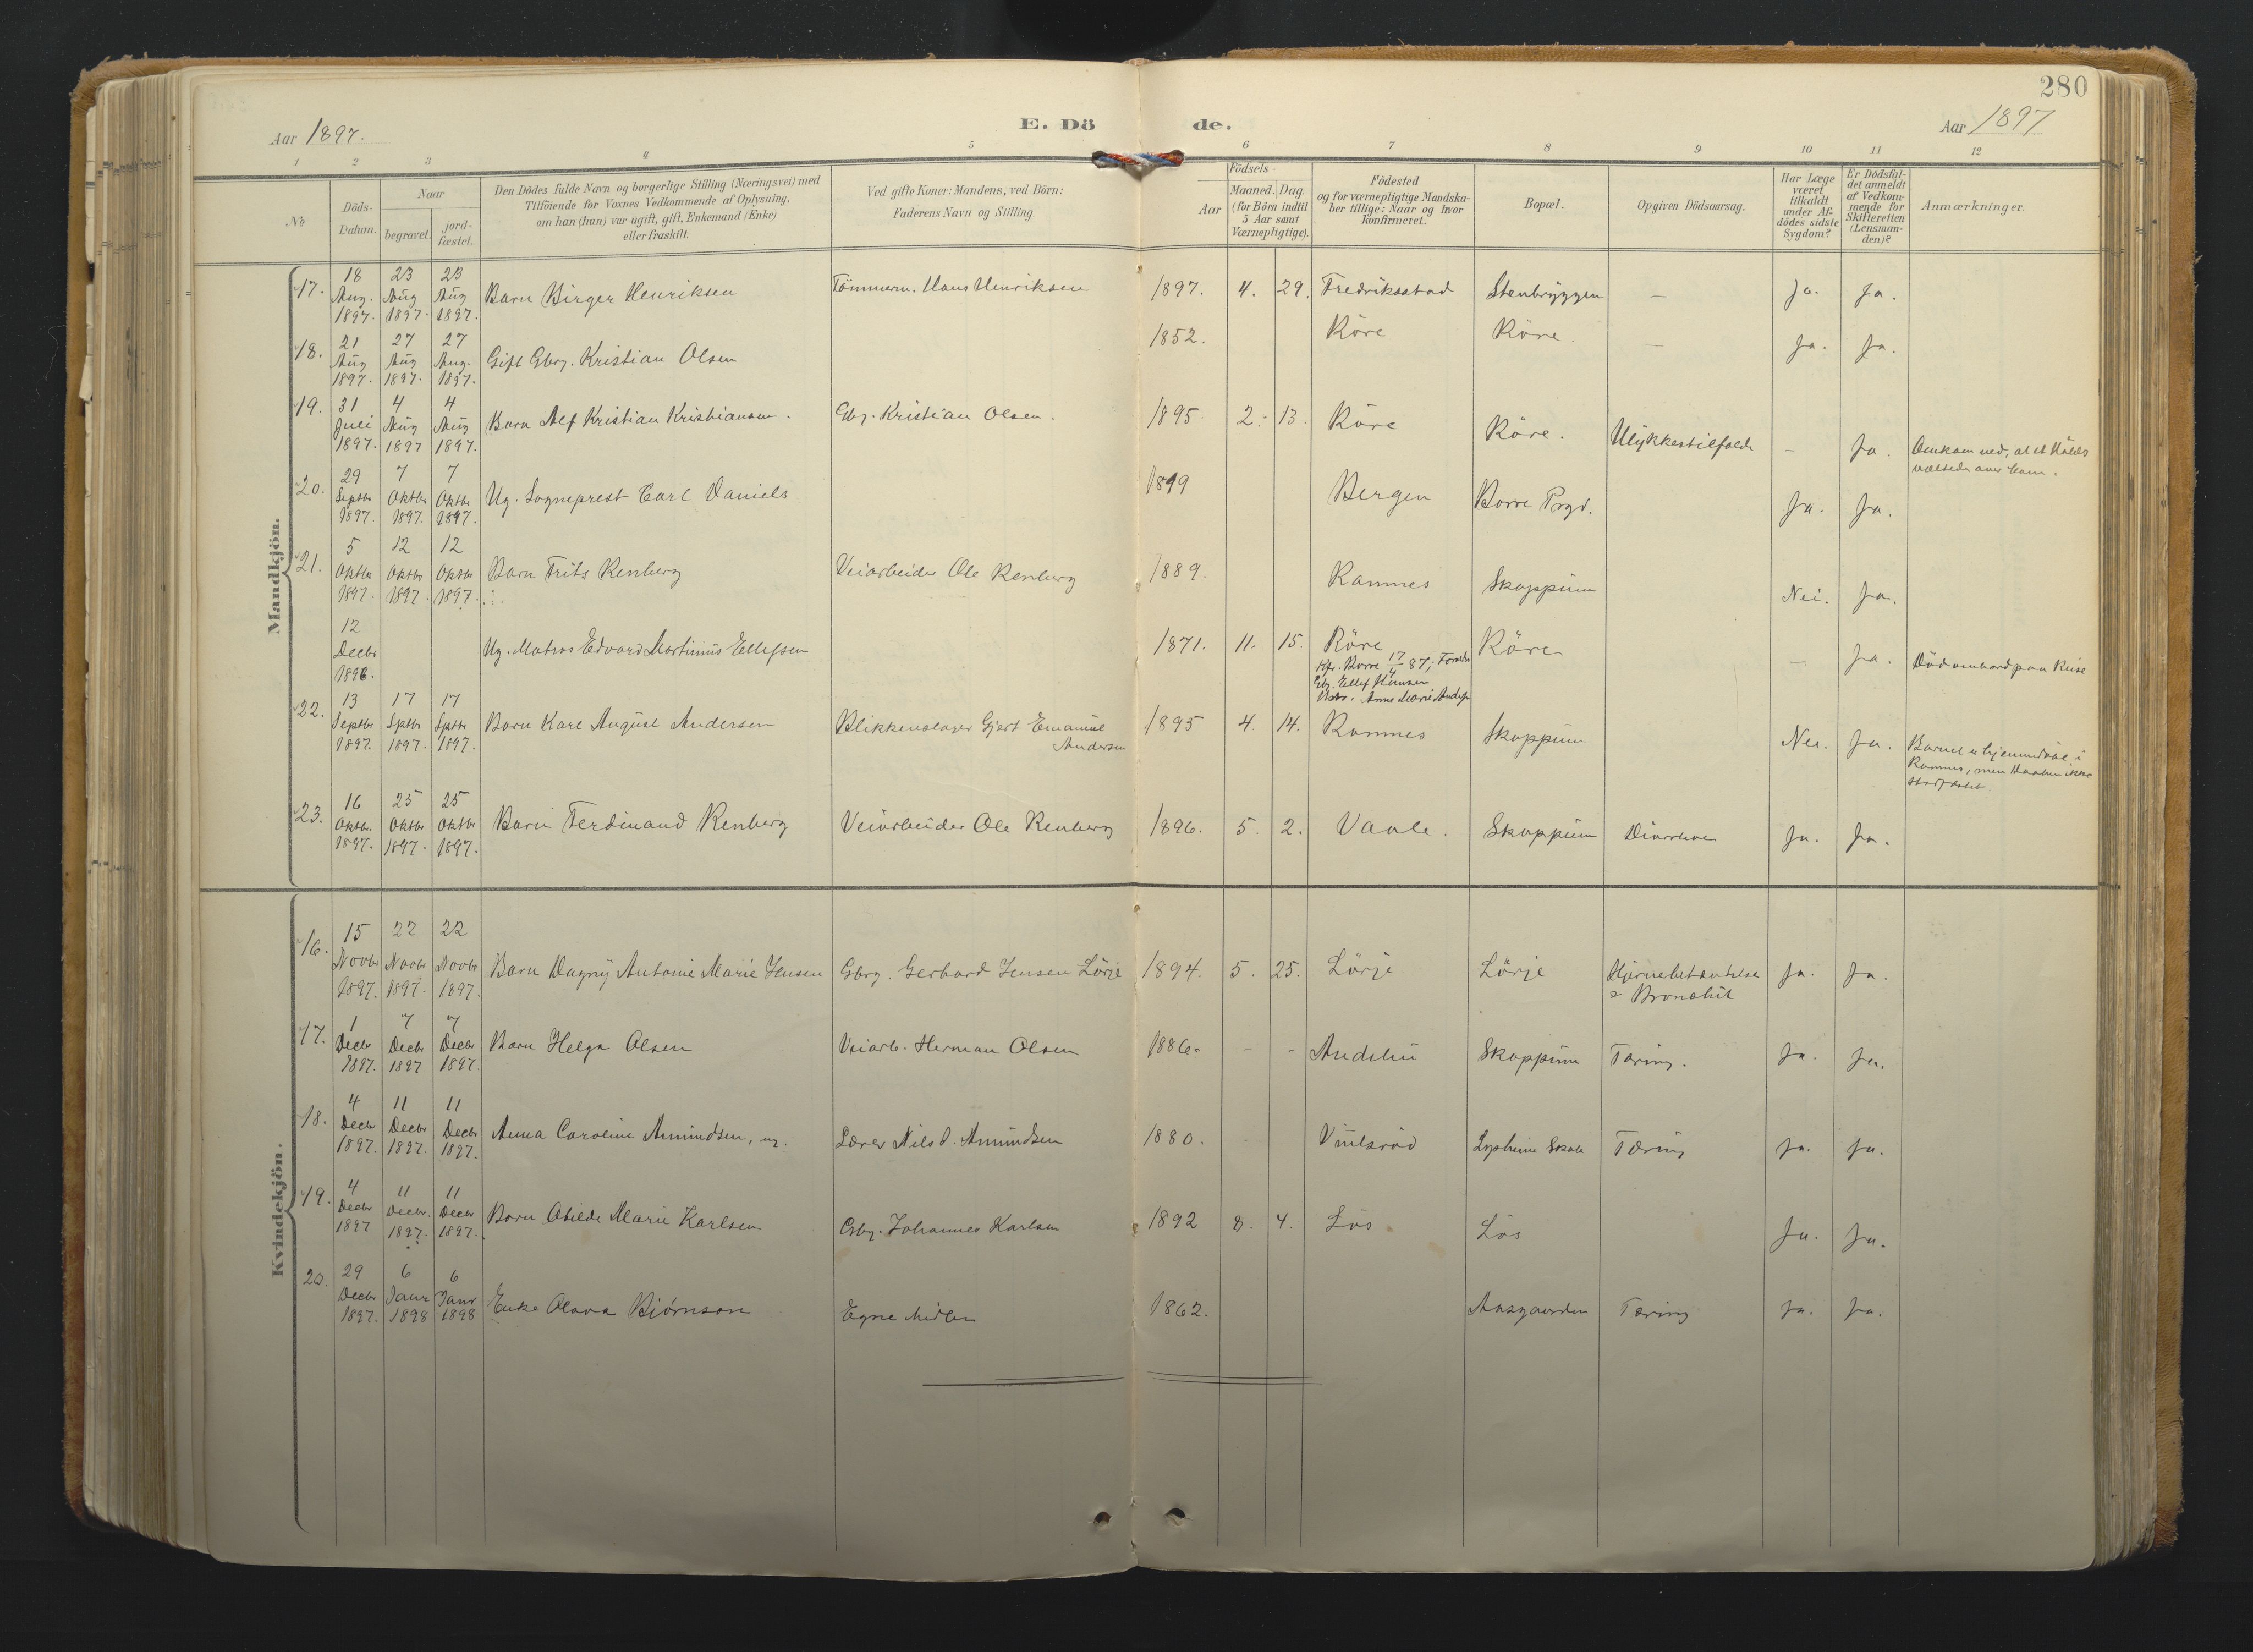 280
Aar 1897.
E. Dö de.
Aar 1897
1 2 3 4 5 6 7 8 9 10 11 12
No
Döds-
Datum.
Naar
begravet.
jord-
fæstet.
Den Dödes fulde Navn og borgerlige Stilling (Næringsvei) med
Tilföiende for Voxnes Vedkommende af Oplysning,
om han (hun) var ugift, gift, Enkemand (Enke)
eller fraskilt.
Ved gifte Koner: Mandens, ved Börn:
Faderens Navn og Stilling.
Födsels-
Aar
Maaned. Dag.
(for Börn indtil
5 Aar samt
Værnepligtige).
Födested
og for værnepligtige Mandska-
ber tillige: Naar og hvor
konfirmeret.
Bopæl.
Opgiven Dödsaarsag.
Har Læge
været
tilkaldt
under Af-
dödes sidste
Sygdom?
Er Dödsfal-
det anmeldt
af Vedkom-
mende for
Skifteretten
(Lensman-
den)?
Anmærkninger.
Mandkjön.
17. 18 Aug. 1897. 23 Aug 1897. 23 Aug 1897. Barn Birger Henriksen Tömmerm. Hans Henriksen 1897. 4. 29. Fredriksstad Stenbryggen — Ja. Ja.
18. 21 Aug 1897. 27 Aug 1897. 27 Aug. 1897. Gift Gbrg. Kristian Olsen 1852. Röre Röre. — Ja. Ja.
19. 31 Juli 1897. 4 Aug 1897 4 Aug 1897. Barn Alf Kristian Kristiansen. Gbg. Kristian Olsen. 1895. 2. 13. Röre Röre. Ulykkestilfælde — Ja. Omkom ved, at et Hölæs
væltede over ham.
20. 29 Septbr 1897. 7 Oktbr 1897. 7 Oktbr 1897. Ug. Sogneprest Carl Daniels 1819 Bergen Borre Prgd. Ja. Ja.
21. 5 Oktbr 1897. 12 Oktbr 1897. 12 Oktbr 1897. Barn Frits Renberg Veiarbeider Ole Renberg 1889. Ramnes Skoppum Nei. Ja.
12 Decbr 1896. Ug. Matros Edvard Martinius Ellefsen 1871. 11. 15. Röre Röre — Ja. Död ombord paa Reise
Kfr. Borre 17/4 87; Foræld
Gbg. Ellef Hansen
Anne Marie Anders
22. 13 Septbr 1897. 17 Sptbr 1897. 17 Sptbr 1897. Barn Karl August Andersen Blikkenslager Gjert Emanuel
Andersen 1895 4. 14. Ramnes Skoppum Nei. Ja. Barnet er hjemmedöbt i
Ramnes, men Daaben ikke
stadfæstet.
23. 16 Oktbr. 1897. 25 Oktbr 1897. 25 Oktbr 1897. Barn Ferdinand Renberg Veiarbeider Ole Renberg 1896. 5. 2. Vaale. Skoppum Diarrhoe Ja. Ja.
Kvindekjön.
16. 15 Novbr 1897. 22 Novbr 1897. 22 Novbr 1897. Barn Dagny Antonie Marie Jensen Gbrg. Gerhard Jensen Lörje 1894. 5. 25. Lörje Lörje Hjernebetændelse
& Bronchit Ja. Ja.
17. 1 Decbr 1897. 7 Decbr 1897 7 Decbr 1897. Barn Helga Olsen Veiarb. Herman Olsen 1886. - - Andebu Skoppum Tæring. Ja. Ja.
18. 4 Decbr 1897. 11 Decbr 1897. 11 Decbr 1897. Anna Caroline Amundsen, ug. Lærer Nils J. Amundsen 1880. Skole Tæring Ja. Ja.
19. 4 Decbr 1897 11 Decbr. 1897. 11 Decbr 1897. Barn Otilde Marie Karlsen Gbg. Johannes Karlsen 1892 8. 4. Lös Lös Ja. Ja.
20. 29 Decbr 1897. 6 Janr 1898 6 Janr 1898 Enke Olava Björnson Egne Midler 1862. Aasgaarden Tæring Ja. Ja.